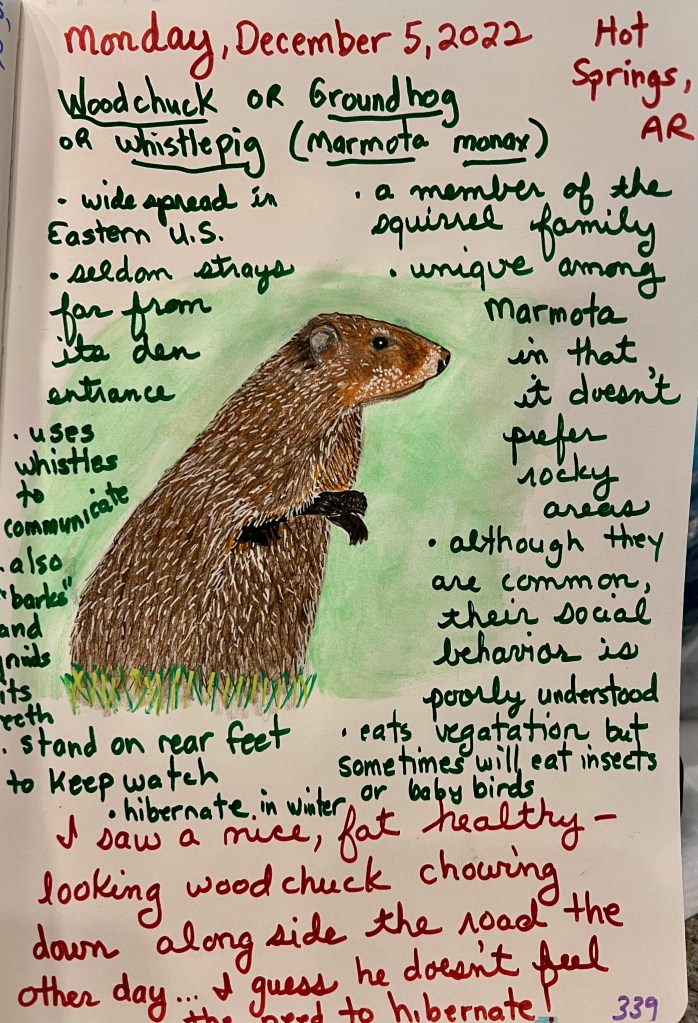 Monday, December 5, 2022
Hot
Springs,
AR
Woodchuck OR Groundhog
OR Whistlepig (Marmota monax)
• wide spread in
Eastern U.S.
• seldom strays
far from
its den
entrance
• uses
whistles
to
communicate
• also
"barks"
and
its
teeth
• stand on rear feet
to keep watch
• hibernate in winter
• a member of the
squirrel family
• unique among
Marmota
in that
it doesn't
prefer
rocky
areas
• although they
are common,
their social
behavior is
poorly understood
• eats vegatation but
sometimes will eat insects
or baby birds
I saw a nice, fat healthy-
looking woodchuck chowing
down along side the road the
other day... I guess he doesn't feel
the need to hibernate!
339